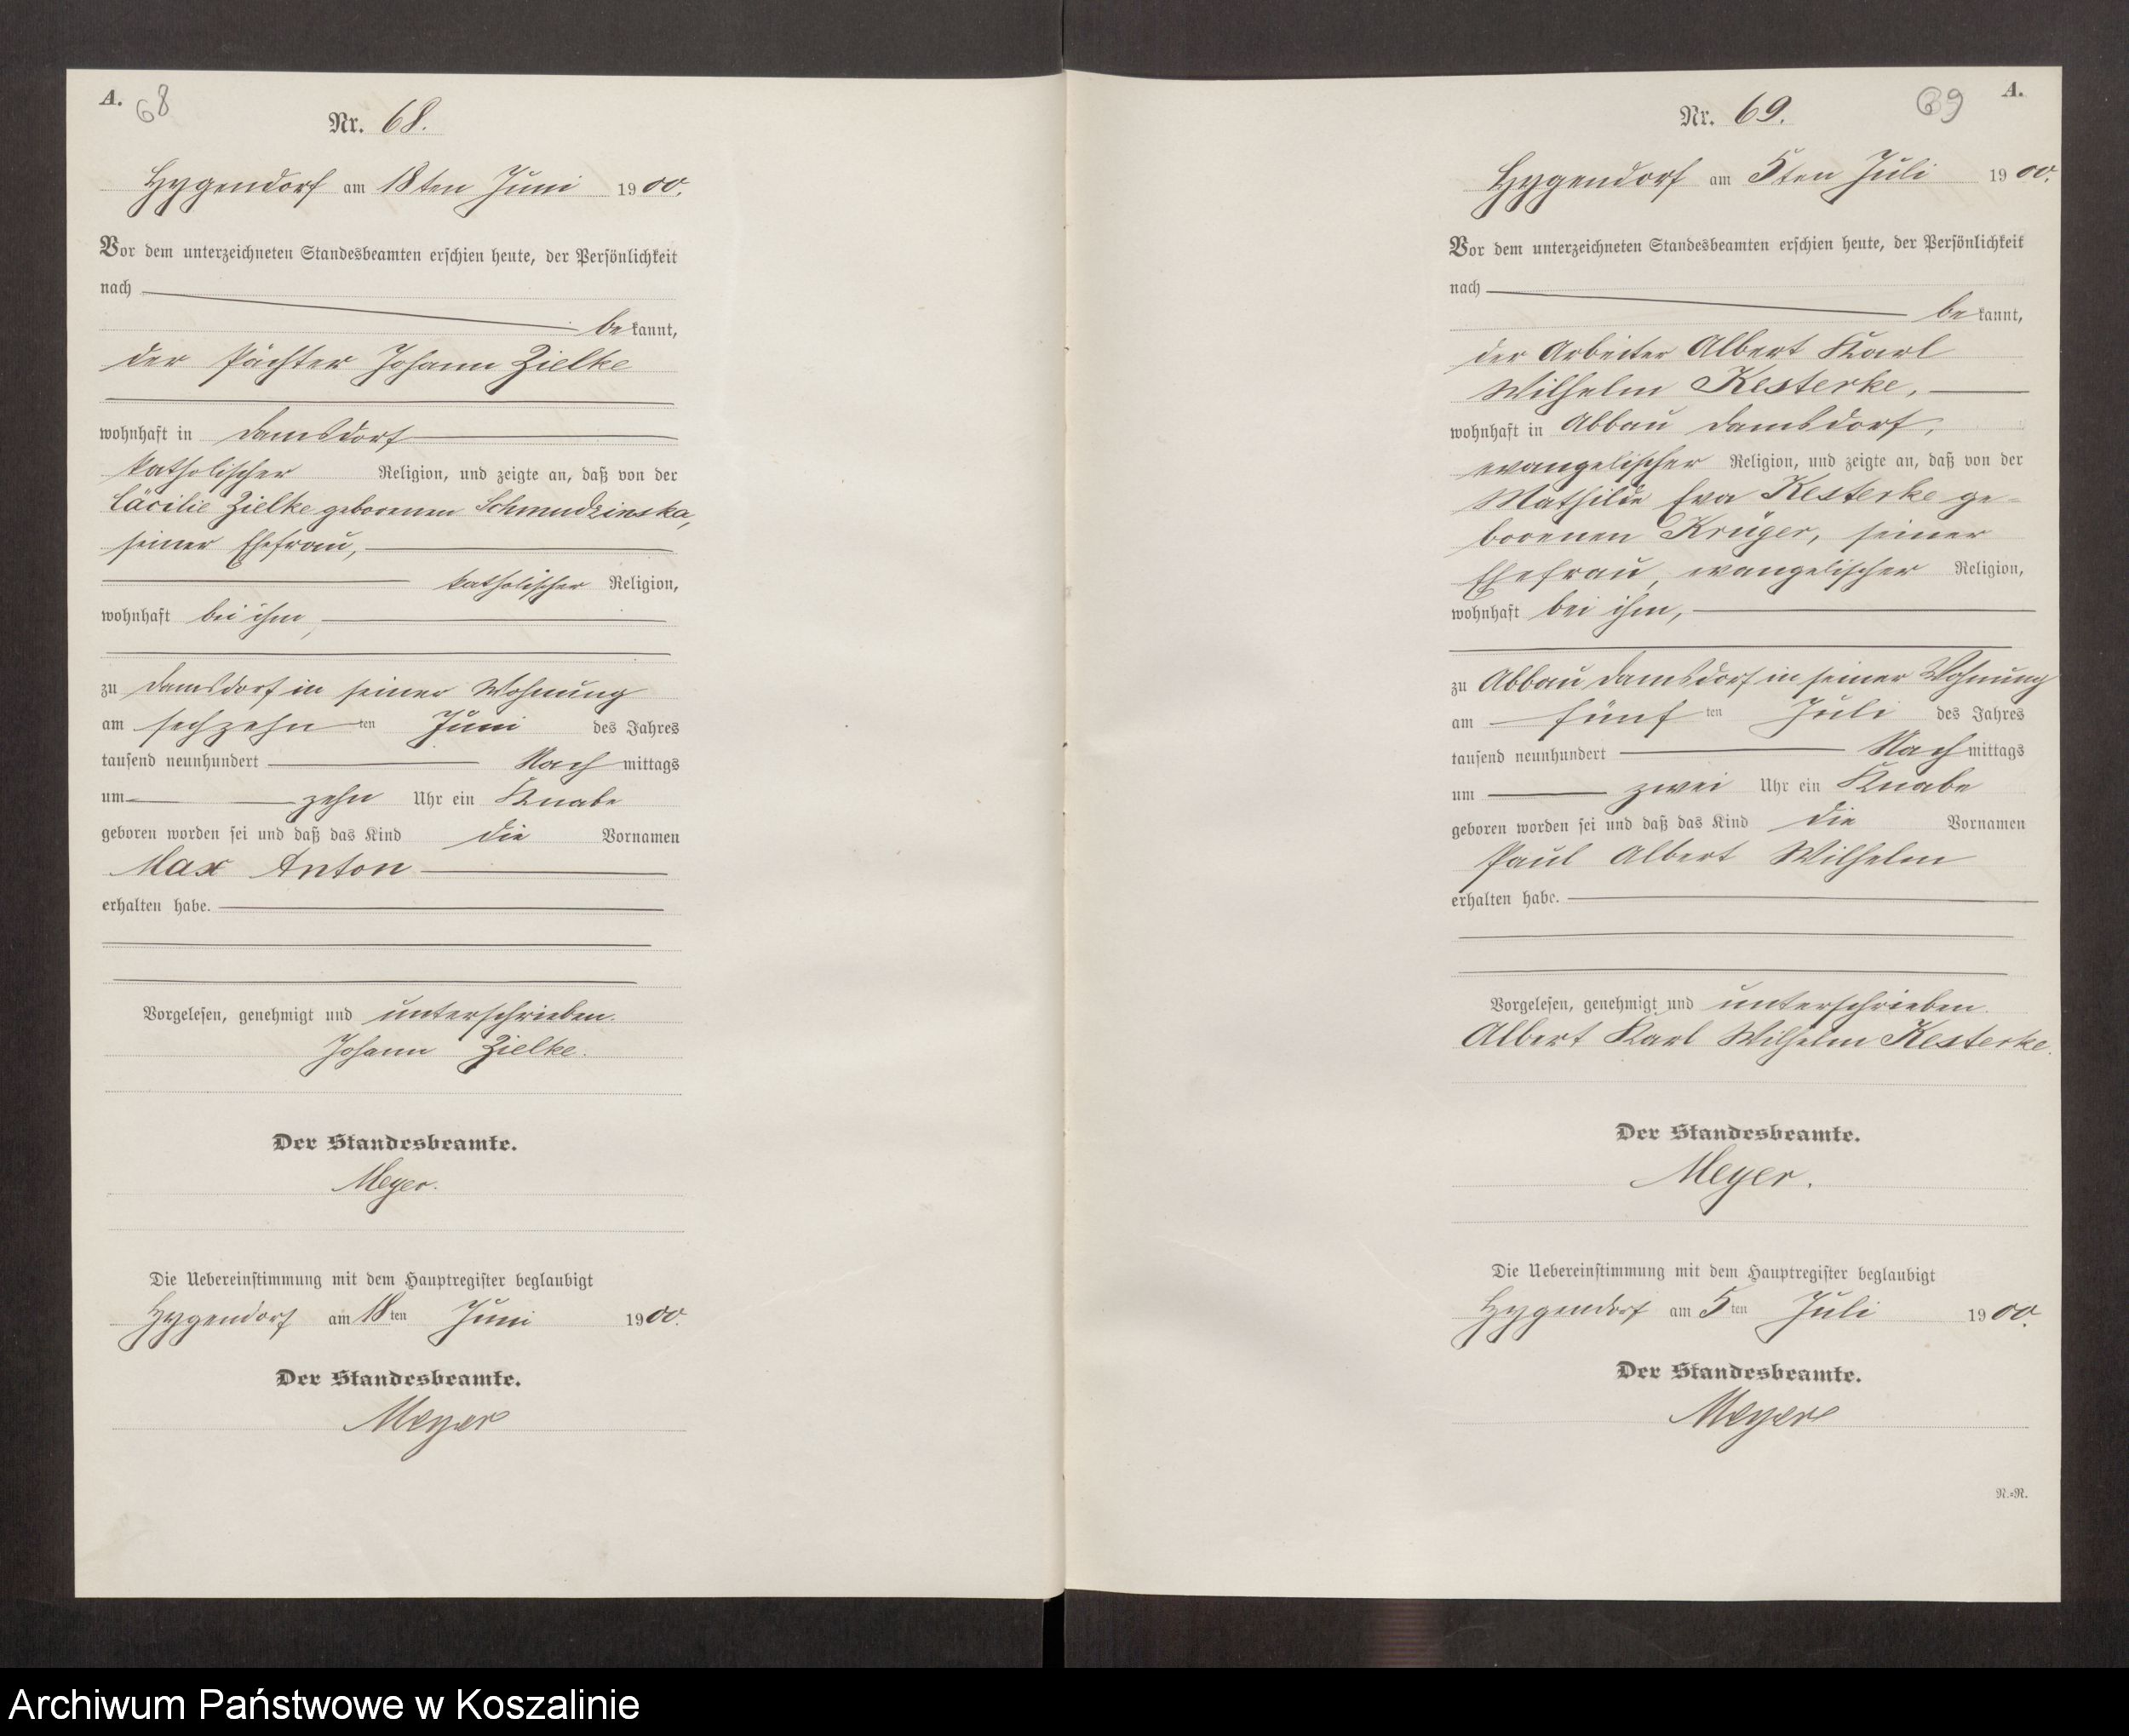 A.
68
Nr. 68.
Hygendorf am 18ten Juni 1900.
Vor dem unterzeichneten Standesbeamten erschien heute, der Persönlichkeit
nach
bekannt,
der Pächter Johann Zielke
wohnhaft in Damsdorf
katholischer Religion, und zeigte an, daß von der
Cäcilie Zielke geborenen Schmudzinska,
seiner Ehefrau,
katholischer Religion,
wohnhaft bei ihm,
zu Damsdorf in seiner Wohnung
am sechzehnten Juni des Jahres
tausend neunhundert Nachmittags
um zehn Uhr ein Knabe
geboren worden sei und daß das Kind die Vornamen
Max Anton
erhalten habe.
Vorgelesen, genehmigt und unterschrieben.
Johann Zielke.
Der Standesbeamte.
Meyer.
Die Uebereinstimmung mit dem Hauptregister beglaubigt
Hygendorf am 18ten Juni 1900.
Der Standesbeamte.
Meyer
A.
69
Nr. 69.
Hygendorf am 5ten Juli 1900.
Vor dem unterzeichneten Standesbeamten erschien heute, der Persönlichkeit
nach
bekannt,
der Arbeiter Albert Karl
Wilhelm Kesterke,
wohnhaft in Abbau Damsdorf,
evangelischer Religion, und zeigte an, daß von der
Mathilde Eva Kesterke ge-
borenen Krüger, seiner
Ehefrau, evangelischer Religion,
wohnhaft bei ihm,
zu Abbau Damsdorf in seiner Wohnung
am fünften Juli des Jahres
tausend neunhundert Nachmittags
um zwei Uhr ein Knabe
geboren worden sei und daß das Kind die Vornamen
Paul Albert Wilhelm
erhalten habe.
Vorgelesen, genehmigt und unterschrieben.
Albert Karl Wilhelm Kesterke.
Der Standesbeamte.
Meyer.
Die Uebereinstimmung mit dem Hauptregister beglaubigt
Hygendorf am 5ten Juli 1900.
Der Standesbeamte.
Meyer
R.=R.
Archiwum Państwowe w Koszalinie